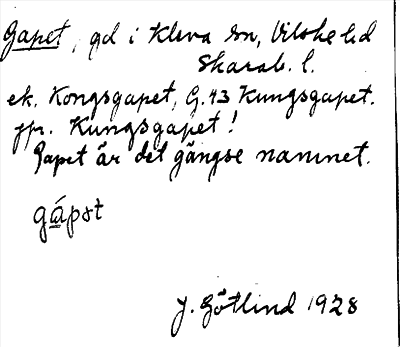 Gapet, gd i Kleva sn, Vilske hd
Skarab. l.
ek. Kongsgapet, G. 43 Kungsgapet.
jfr. Kungsgapet!
Gapet är det gängse namnet.
gápət
J. Götlind 1928